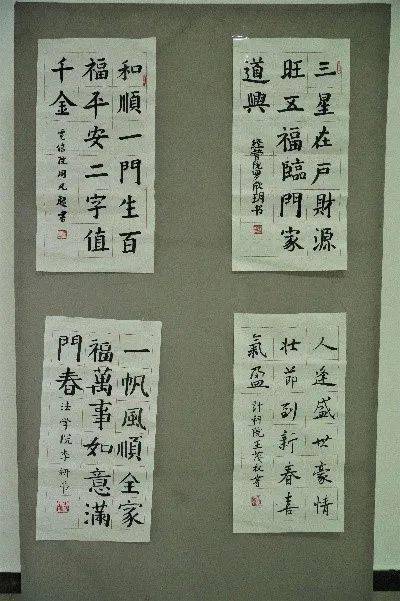 和順一門生百
福平安二字值
千金
三星在戶財源
旺五福臨門家
道興
经管院罗欣玥书
一帆風順全家
福萬事如意滿
門春
法学院李妍书
人逢盛世豪情
壮節到新春喜
氣盈
计科院王茂